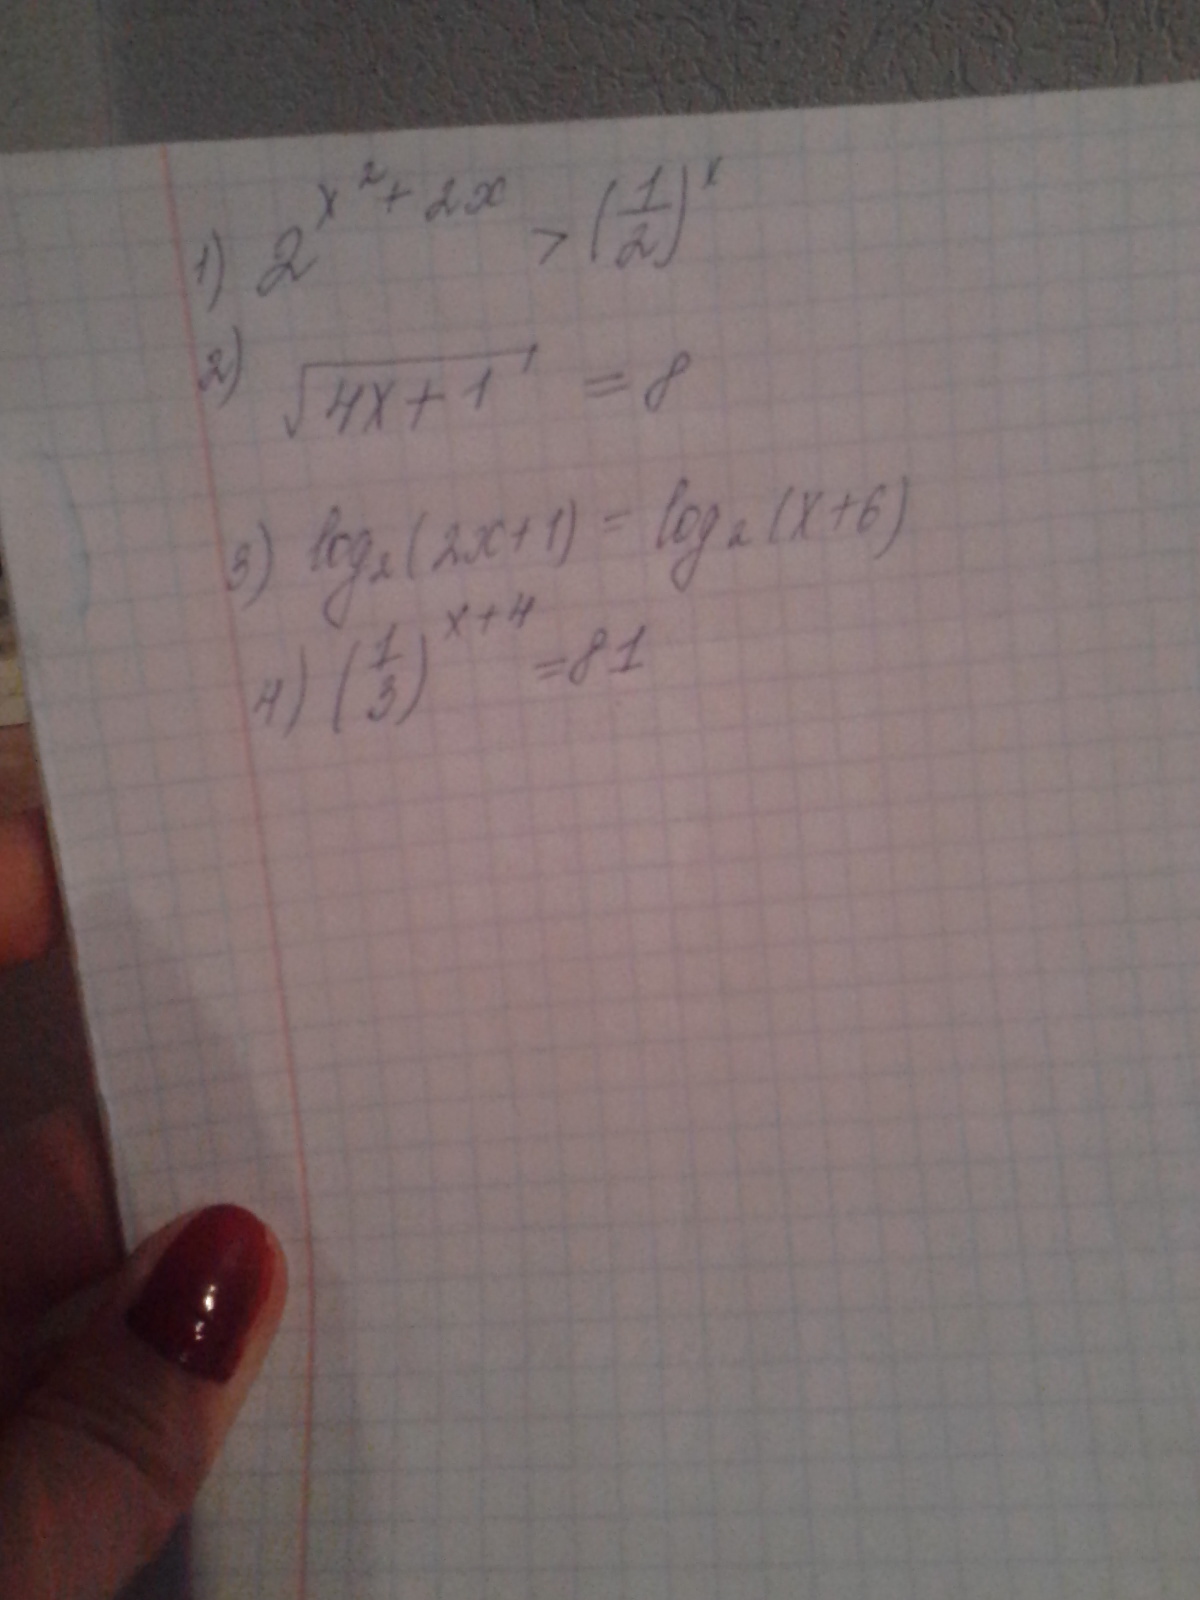 1) 2^{x^2+2x} > (1/2)^x
2) √(4x+1) = 8
3) log₂(2x+1) = log₂(x+6)
4) (1/3)^{x+4} = 81